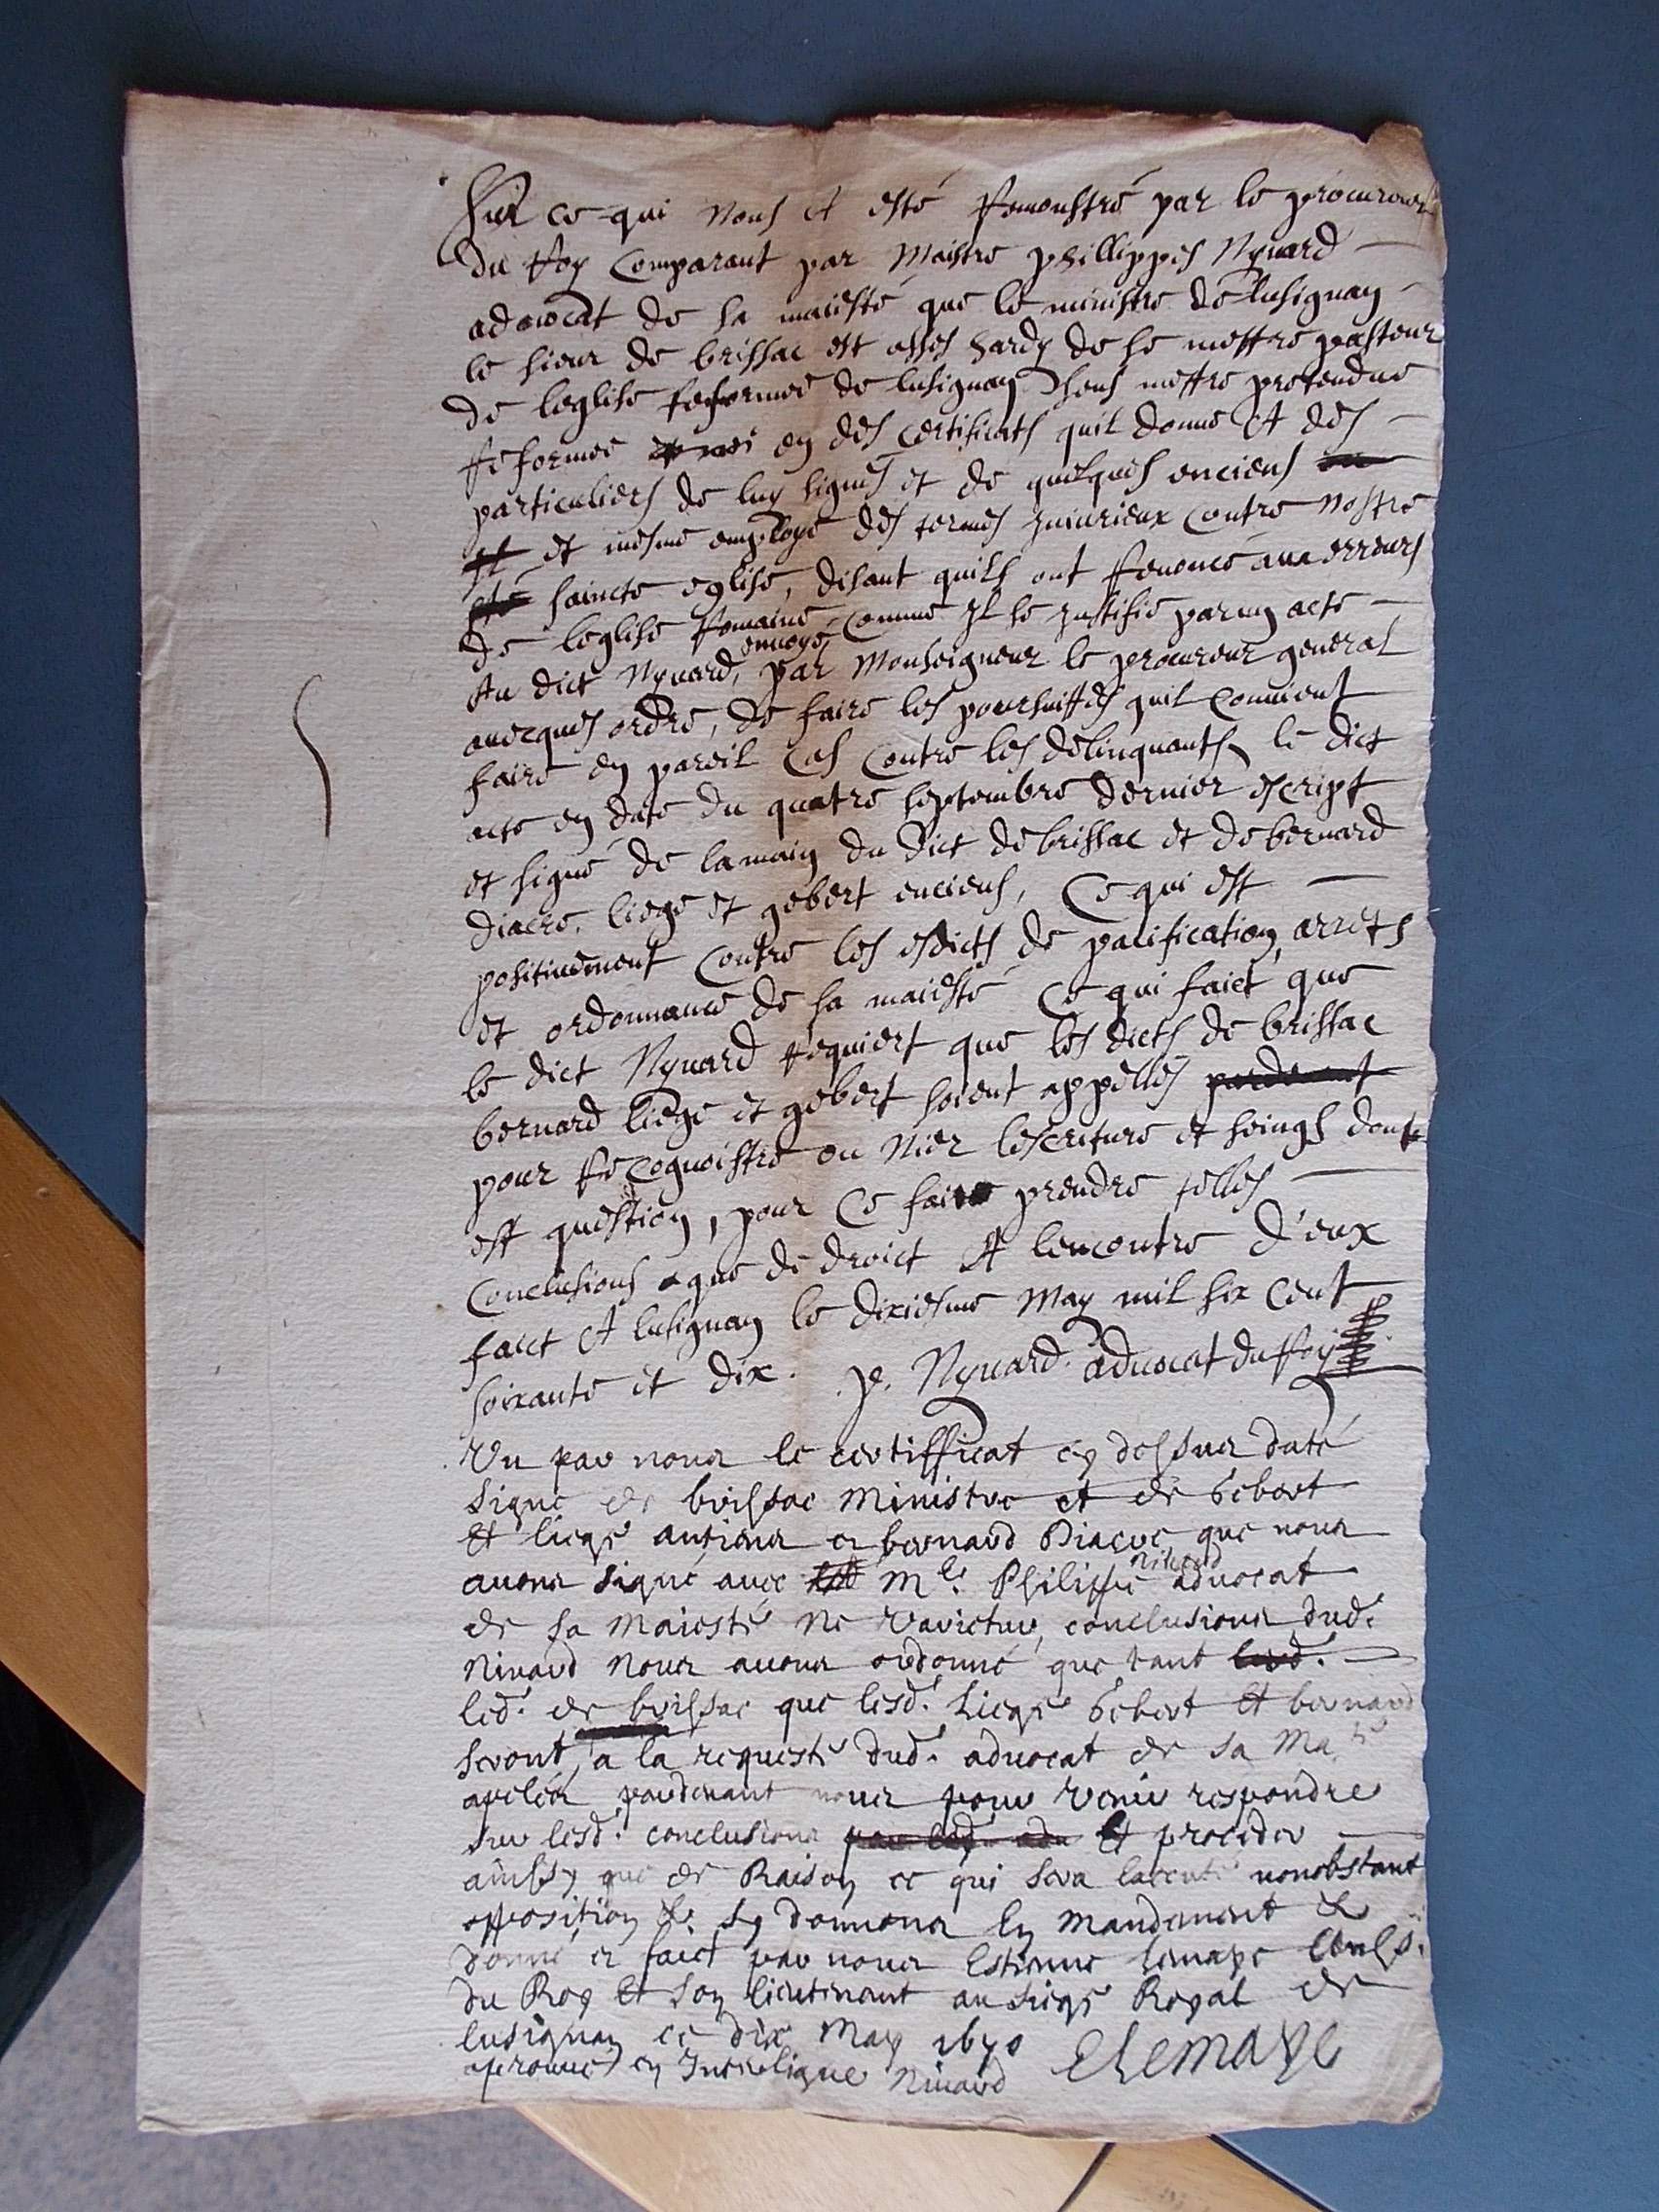 Sur ce qui nous a esté remonstré par le procureur
du roy comparant par maistre phillippes Nyvard
advocat de sa maiesté que le ministre de lusignan
le sieur de brissac est asses hardy de se mettre pasteur
de leglise reformee de lusignan sens mettre pretendue
reformee en des certificats quil donne A des
particuliers de luy signés et de quelques enciens
et mesme employe des termes iniurieux contre nostre
saincte eglise, disant quils ont renoncé aux erreurs
de leglise romaine comme Il se justifie par un acte
envoyé
Au dict Nyvard, par Monseigneur le procureur general
avecques ordre, de faire les poursuittes quil convient
faire en pareil cas contre les delinquants, le dict
acte en date du quatre septembre dernier escript
et signé de la main du dict de brissac et de bernard
diacre, liege et gebert enciens, Ce qui est
positivement contre les esdicts de pacification, arrets
et ordonnance de sa maiesté Ce qui faict que
le dict Nyvard requiert que les dicts de brissac
bernard liege et gebert soient appellés pardevant
pour recognoistre ou nier lescriture et seings dont
est question, pour ce faict prendre telles
conclusions que de droict A lencontre d'eux
faict A lusignan le dixiesme May mil six cent
soixante et dix. p. Nyvard. advocat du Roy
Veu par nous le certifficat cy dessus daté
signé de brissac Ministre et de Gebert
Et liege antiens et bernard Diacre que nous
avons signé avec Me. Philippe Nivard advocat
de sa Maiesté Ne varietur, conclusions dud.
Nivard Nous avons ordonné que tant
led. de brissac que lesd. Liege Gebert Et bernard
seront, a la requeste dud. advocat de sa Ma.té
apelés pardevant nous pour venir respondre
sur lesd. conclusions Et proceder
ainssy que de Raison ce qui sera nonobstant
opposition &. Sy donnons En mandement &
donné et faict par nous Estienne Lemaye
du Roy Et son lieutenant au siege Royal de
lusignan ce dix May 1670 E Lemaye
aprouvé en Interligne Nivard